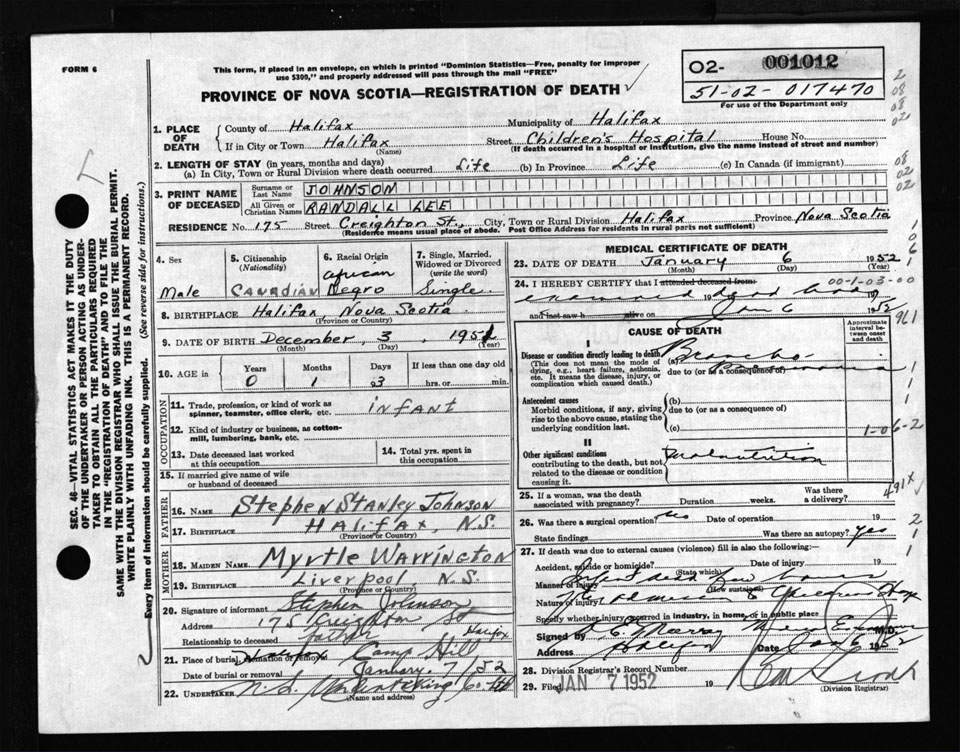 FORM 6
This form, if placed in an envelope, on which is printed "Dominion Statistics—Free, penalty for improper
use $300," and properly addressed will pass through the mail "FREE"
PROVINCE OF NOVA SCOTIA—REGISTRATION OF DEATH
O2- 001012
51-02-017470
For use of the Department only
1. PLACE OF DEATH
County of Halifax
Municipality of Halifax
If in City or Town Halifax (Name)
Street Children's Hospital House No.
(If death occurred in a hospital or institution, give the name instead of street and number)
2. LENGTH OF STAY (in years, months and days)
(a) In City, Town or Rural Division where death occurred Life (b) In Province Life (c) In Canada (if immigrant)
3. PRINT NAME OF DECEASED
Surname or Last Name JOHNSON
All Given or Christian Names RANDALL LEE
RESIDENCE No. 175 Street Creighton St., City, Town or Rural Division Halifax Province Nova Scotia
(Residence means usual place of abode. Post Office Address for residents in rural parts not sufficient)
4. Sex
Male
5. Citizenship (Nationality)
CANADIAN
6. Racial Origin
African
Negro
7. Single, Married, Widowed or Divorced (write the word)
Single
8. BIRTHPLACE Halifax Nova Scotia
(Province or Country)
9. DATE OF BIRTH December 3, 1951
(Month) (Day) (Year)
10. AGE in Years 0 Months 1 Days 3 If less than one day old hrs. or min.
OCCUPATION
11. Trade, profession, or kind of work as spinner, teamster, office clerk, etc. infant
12. Kind of industry or business, as cotton-mill, lumbering, bank, etc.
13. Date deceased last worked at this occupation
14. Total yrs. spent in this occupation
15. If married give name of wife or husband of deceased
FATHER
16. NAME Stephen Stanley Johnson
17. BIRTHPLACE HALIFAX, N.S.
(Province or Country)
MOTHER
18. MAIDEN NAME Myrtle Warrington
19. BIRTHPLACE Liverpool, N.S.
(Province or Country)
20. Signature of informant Stephen Johnson
Address 175 Creighton St Halifax
Relationship to deceased father
21. Place of burial, cremation or removal Halifax Camp Hill
Date of burial or removal January 7/52
22. UNDERTAKER N.S. Undertaking Co. Ltd
(Name and address)
MEDICAL CERTIFICATE OF DEATH
23. DATE OF DEATH January 6 1952
(Month) (Day) (Year)
24. I HEREBY CERTIFY that I attended deceased from:
00-1-03-00
examined dead body 19
and last saw h alive on Jan 6 52
CAUSE OF DEATH
Approximate interval between onset and death
I
Disease or condition directly leading to death
(This does not mean the mode of dying, e.g., heart failure, asthenia, etc. It means the disease, injury, or complication which caused death.)
(a) Broncho Pneumonia
due to (or as a consequence of)
Antecedent causes
Morbid conditions, if any, giving rise to the above cause, stating the underlying condition last.
(b)
due to (or as a consequence of)
(c)
1-06-2
II
Other significant conditions
contributing to the death, but not related to the disease or condition causing it.
Malnutrition
491X
25. If a woman, was the death associated with pregnancy? Duration weeks. Was there a delivery?
26. Was there a surgical operation? No Date of operation 19
State findings Was there an autopsy? Yes
27. If death was due to external causes (violence) fill in also the following:—
Accident, suicide or homicide? Date of injury 19
(State which)
Manner of injury Infant dead few hours
(How sustained)
Nature of injury Children's Hosp
Specify whether injured in industry, in home, or in public place
Signed by Murray M.D.
Address Halifax Date Jan 6 52
28. Division Registrar's Record Number
29. Filed JAN 7 1952 19
(Division Registrar)
SEC. 46—VITAL STATISTICS ACT MAKES IT THE DUTY
OF THE UNDERTAKER OR PERSON ACTING AS UNDER-
TAKER TO OBTAIN ALL THE PARTICULARS REQUIRED
IN THE "REGISTRATION OF DEATH" AND TO FILE THE
SAME WITH THE DIVISION REGISTRAR WHO SHALL ISSUE THE BURIAL PERMIT.
WRITE PLAINLY WITH UNFADING INK. THIS IS A PERMANENT RECORD.
Every item of information should be carefully supplied. (See reverse side for instructions.)